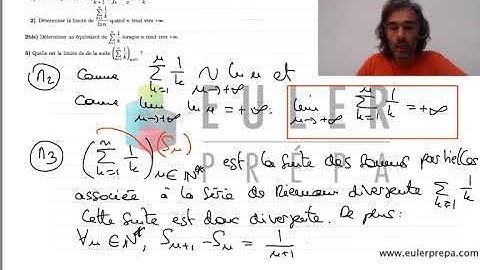 2). Déterminer la limite de $\frac{\sum_{k=1}^{n} \frac{1}{k}}{\ln n}$ quand n tend vers +∞.
2bis) Déterminer un équivalent de $\sum_{k=1}^{n} \frac{1}{k}$ lorsque n tend vers +∞.
3) Quelle est la limite de de la suite $\left(\sum_{k=1}^{n} \frac{1}{k}\right)_{n \in \mathbb{N}^*}$ ?
N2 Comme $\sum_{k=1}^{n} \frac{1}{k} \underset{n \to +\infty}{\sim} \ln n$ et
Comme $\lim_{n \to +\infty} \ln n = +\infty$.
$\lim_{n \to +\infty} \sum_{k=1}^{n} \frac{1}{k} = +\infty$
EULER
PRÉPA
N3 $\left(\sum_{k=1}^{n} \frac{1}{k}\right)_{n \in \mathbb{N}^*}$ $(S_n)$ est la suite des sommes partielles
associée à la série de Riemann divergente $\sum_{k=1} \frac{1}{k}$
Cette suite est donc divergente. De plus:
$\forall n \in \mathbb{N}^*, S_{n+1} - S_n = \frac{1}{n+1}$
www.eulerprepa.com